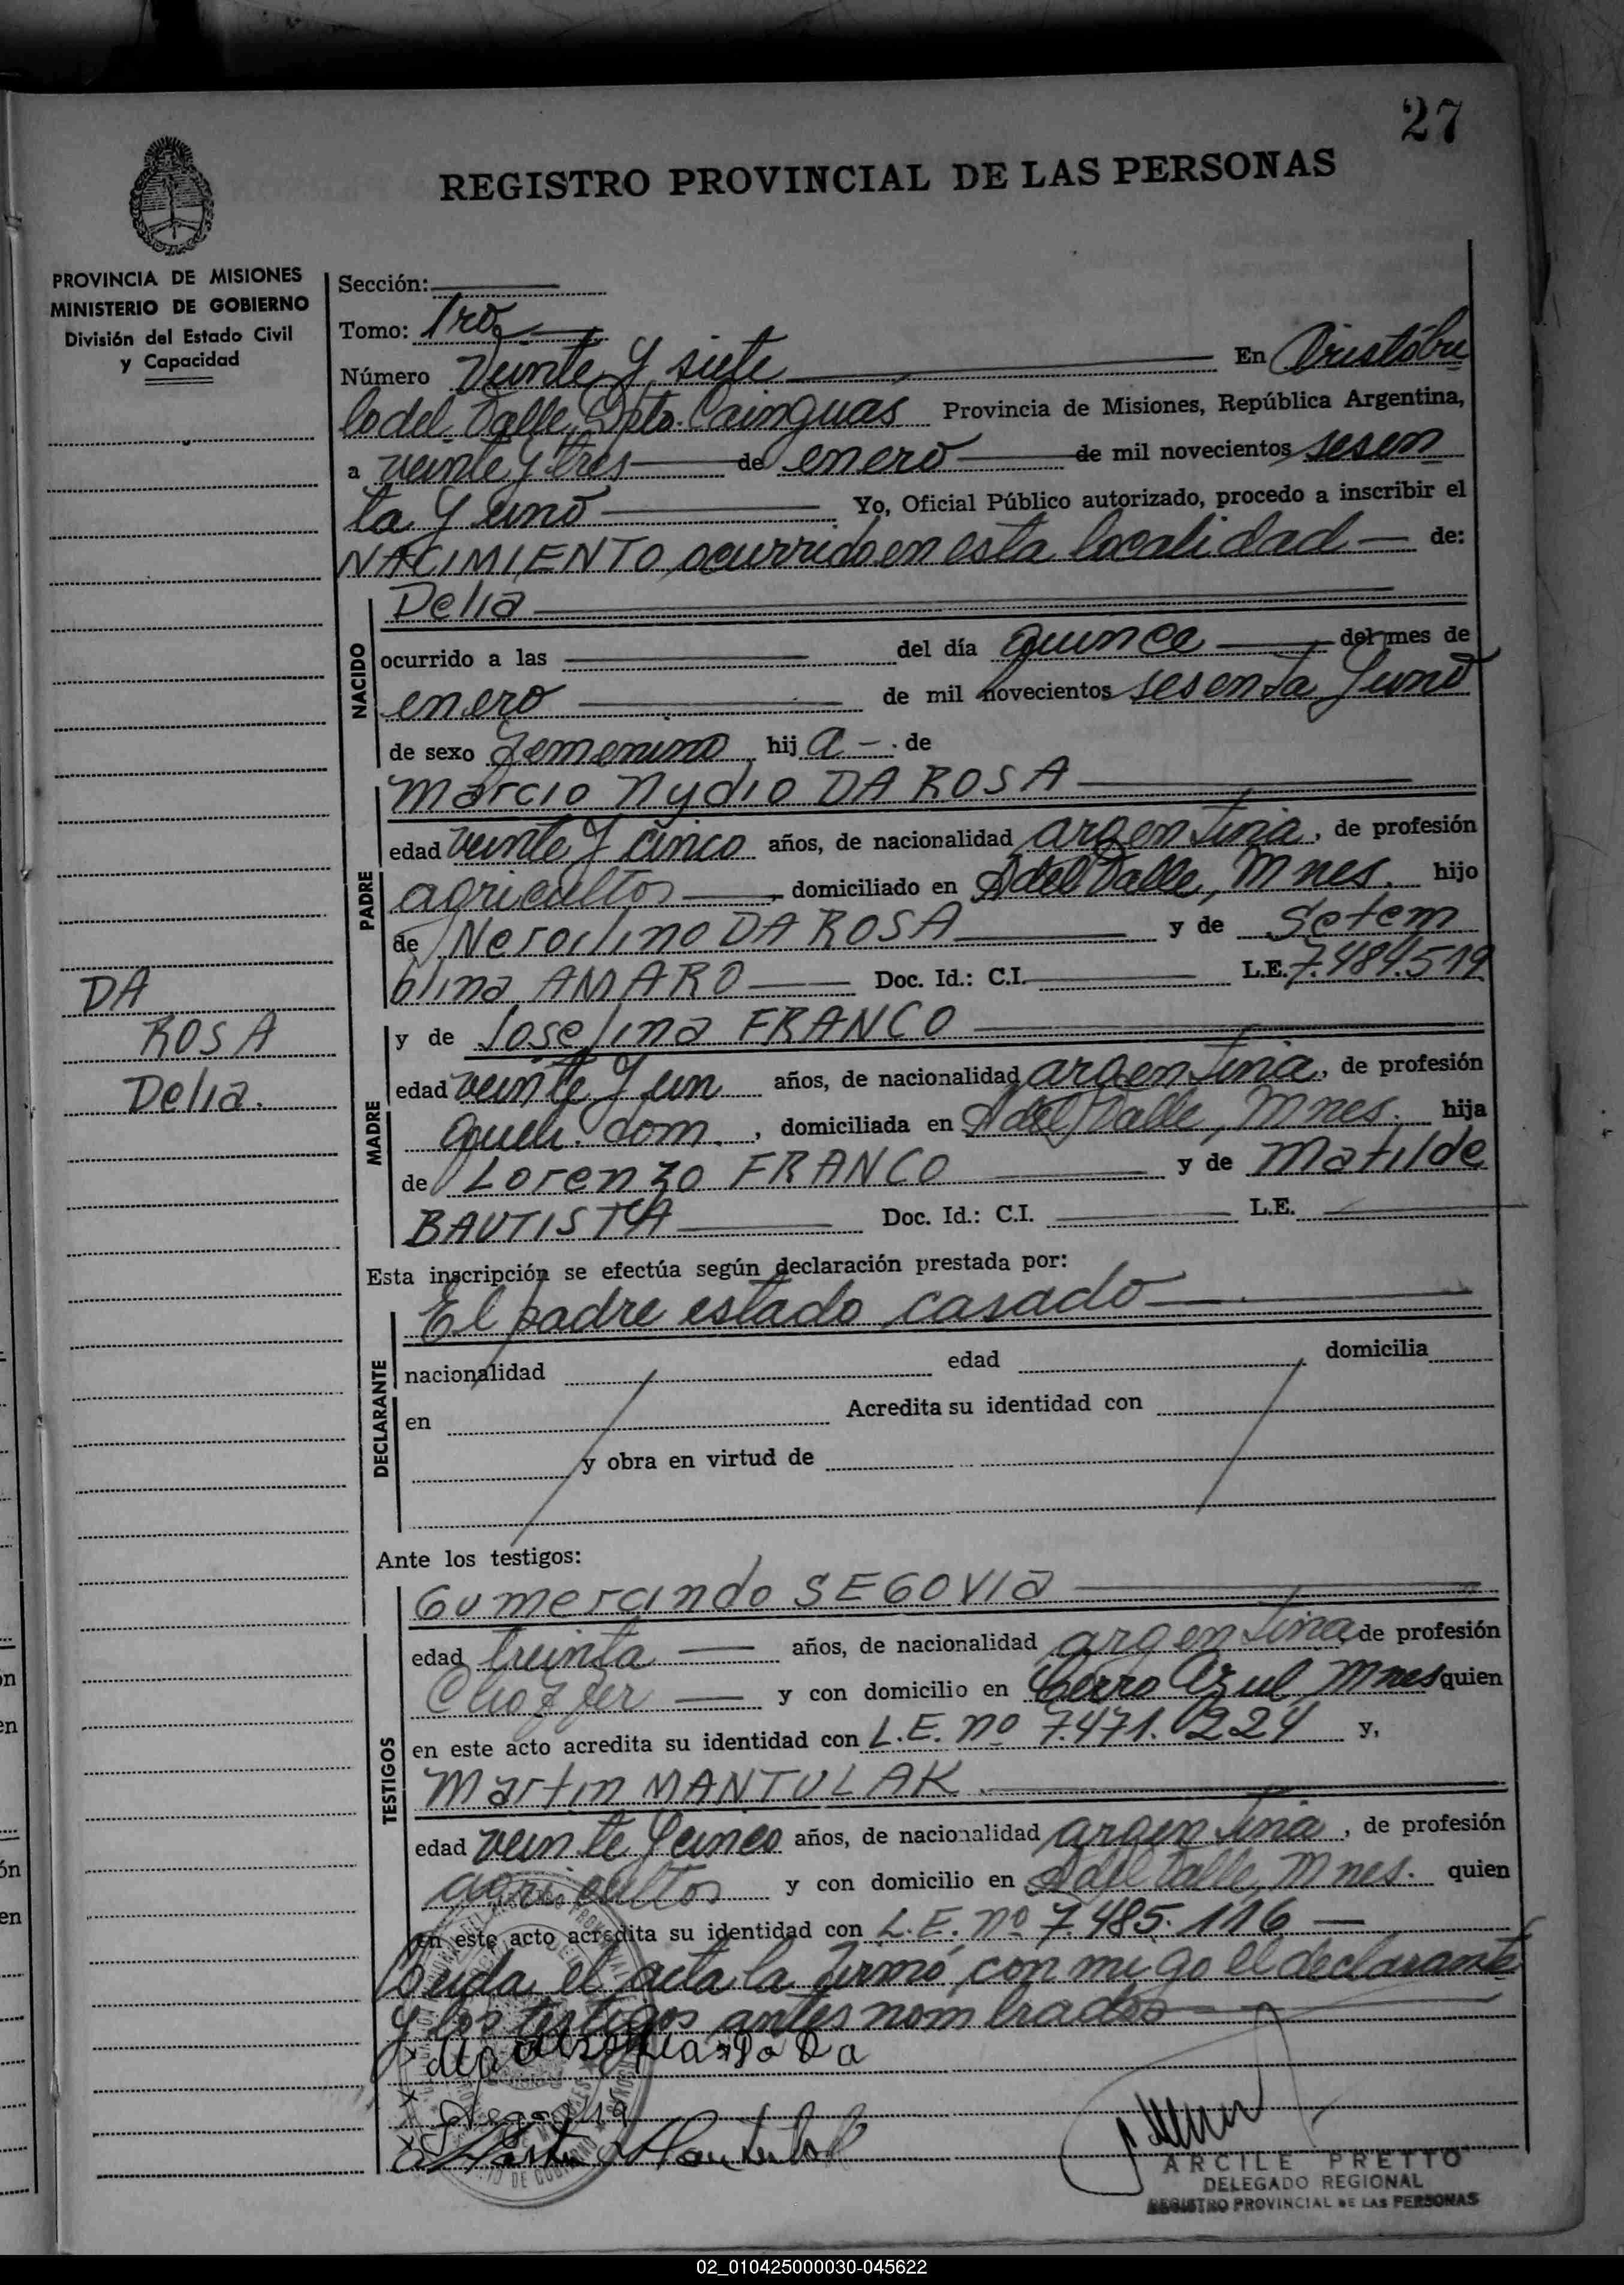 27
REGISTRO PROVINCIAL DE LAS PERSONAS
PROVINCIA DE MISIONES
MINISTERIO DE GOBIERNO
División del Estado Civil
y Capacidad
DA
ROSA
Delia.
Sección:
Tomo: 1ro
Número Veinte y siete En Aristóbu
lo del Valle, Dpto. Cainguas Provincia de Misiones, República Argentina,
a veinte y tres de enero de mil novecientos sesen
ta y uno Yo, Oficial Público autorizado, procedo a inscribir el
NACIMIENTO ocurrido en esta localidad de:
NACIDO
Delia
ocurrido a las del día quince del mes de
enero de mil novecientos sesenta y uno
de sexo femenino hij a - . de
PADRE
Marcio Nydio DA ROSA
edad veinte y cinco años, de nacionalidad argentina, de profesión
agricultor, domiciliado en A del Valle, Mnes. hijo
de Neroclino DA ROSA y de Setem
blina AMARO Doc. Id.: C.I. L.E. 7.484.519
MADRE
y de Josefina FRANCO
edad veinte y un años, de nacionalidad argentina, de profesión
queh. dom., domiciliada en A del Valle, Mnes. hija
de Lorenzo FRANCO y de Matilde
BAUTISTA Doc. Id.: C.I. L.E.
Esta inscripción se efectúa según declaración prestada por:
DECLARANTE
El padre estado casado
nacionalidad edad domicilia
en Acredita su identidad con
y obra en virtud de
Ante los testigos:
TESTIGOS
Gumercindo SEGOVIA
edad treinta años, de nacionalidad argentina de profesión
Choffer y con domicilio en Cerro Azul, Mnes quien
en este acto acredita su identidad con L.E. nº 7.471.224 y,
Martin MANTULAK.
edad veinte y cinco años, de nacionalidad argentina, de profesión
agricultor y con domicilio en A del Valle, Mnes. quien
en este acto acredita su identidad con L.E. nº 7.485.116
Leida el acta la firmó con migo el declarante
y los testigos antes nombrados
ARCILE PRETTO
DELEGADO REGIONAL
REGISTRO PROVINCIAL DE LAS PERSONAS
02_010425000030-045622